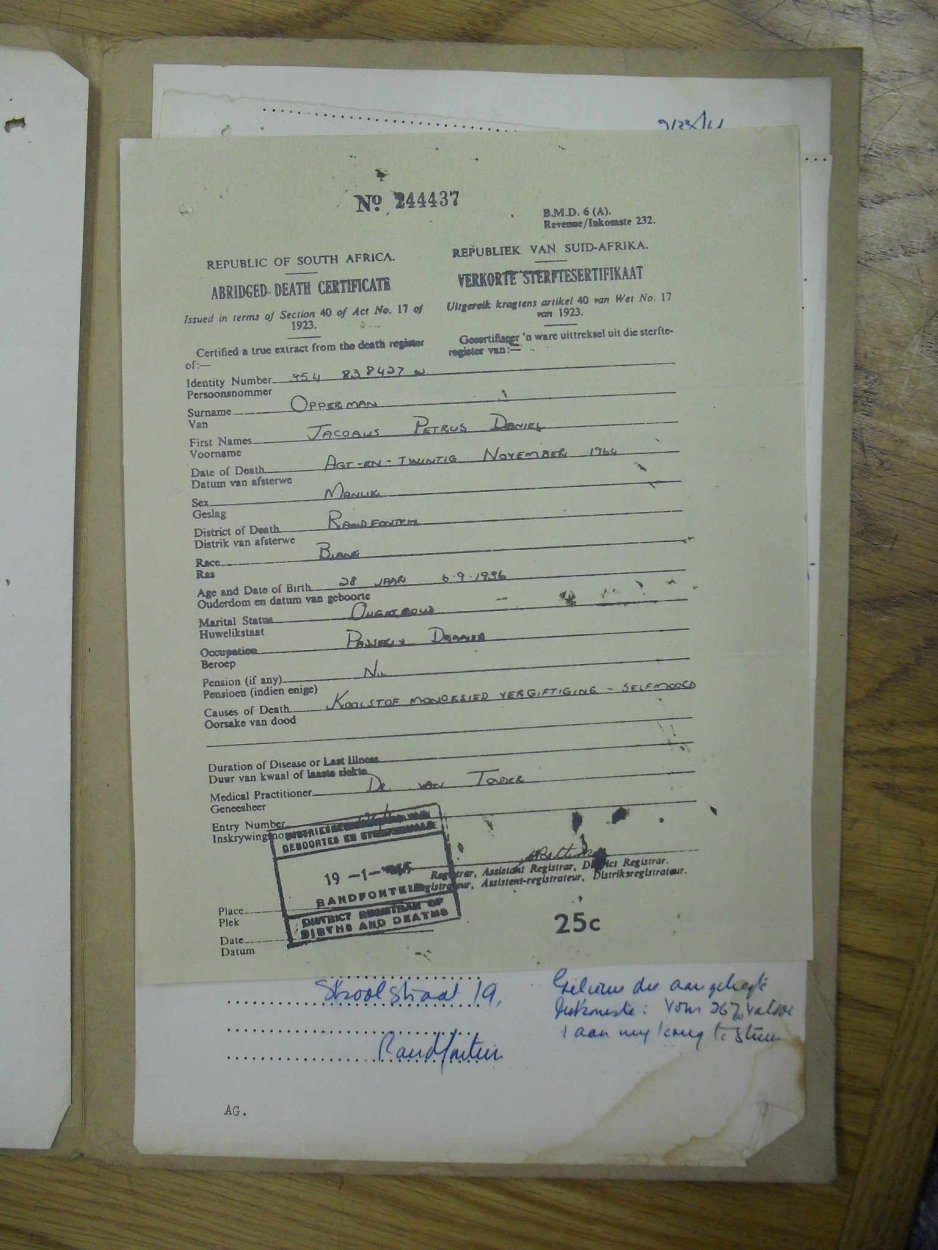 No 244437
B.M.D. 6 (A).
Revenue/Inkomste 232.
REPUBLIC OF SOUTH AFRICA.
ABRIDGED DEATH CERTIFICATE
Issued in terms of Section 40 of Act No. 17 of
1923.
Certified a true extract from the death register
of:—
REPUBLIEK VAN SUID-AFRIKA.
VERKORTE STERFTESERTIFIKAAT
Uitgereik kragtens artikel 40 van Wet No. 17
van 1923.
Gesertifiseer 'n ware uittreksel uit die sterfte-
register van:—
Identity Number 354 838427
Persoonsnommer
Surname OPPERMAN
Van
First Names JACOBUS PETRUS DANIEL
Voorname
Date of Death AGT-EN-TWINTIG NOVEMBER 1964
Datum van afsterwe
Sex MANLIK
Geslag
District of Death RANDFONTEIN
Distrik van afsterwe
Race BLANK
Ras
Age and Date of Birth 28 JAAR 6.9.1936
Ouderdom en datum van geboorte
Marital Status ONGETROUD
Huwelikstaat
Occupation
Beroep
Pension (if any) NIL
Pensioen (indien enige)
Causes of Death KOOLSTOF MONOKSIED VERGIFTIGING - SELFMOORD
Oorsake van dood
Duration of Disease or Last Illness
Duur van kwaal of laaste siekte
Medical Practitioner DR. VAN TONDER
Geneesheer
Entry Number
Inskrywings
GEBOORTES EN STERFGEVALLE
19 -1-
RANDFONTEIN
DISTRICT REGISTRAR OF
BIRTHS AND DEATHS
Registrar, Assistant Registrar, District Registrar.
Registrateur, Assistent-registrateur, Distriksregistrateur.
Place
Plek
Date
Datum
25c
Skoolstraat 19,
Randfontein
Gelieve die aangehegte
Inkomste: Vorm 267
aan my terug te stuur
AG.